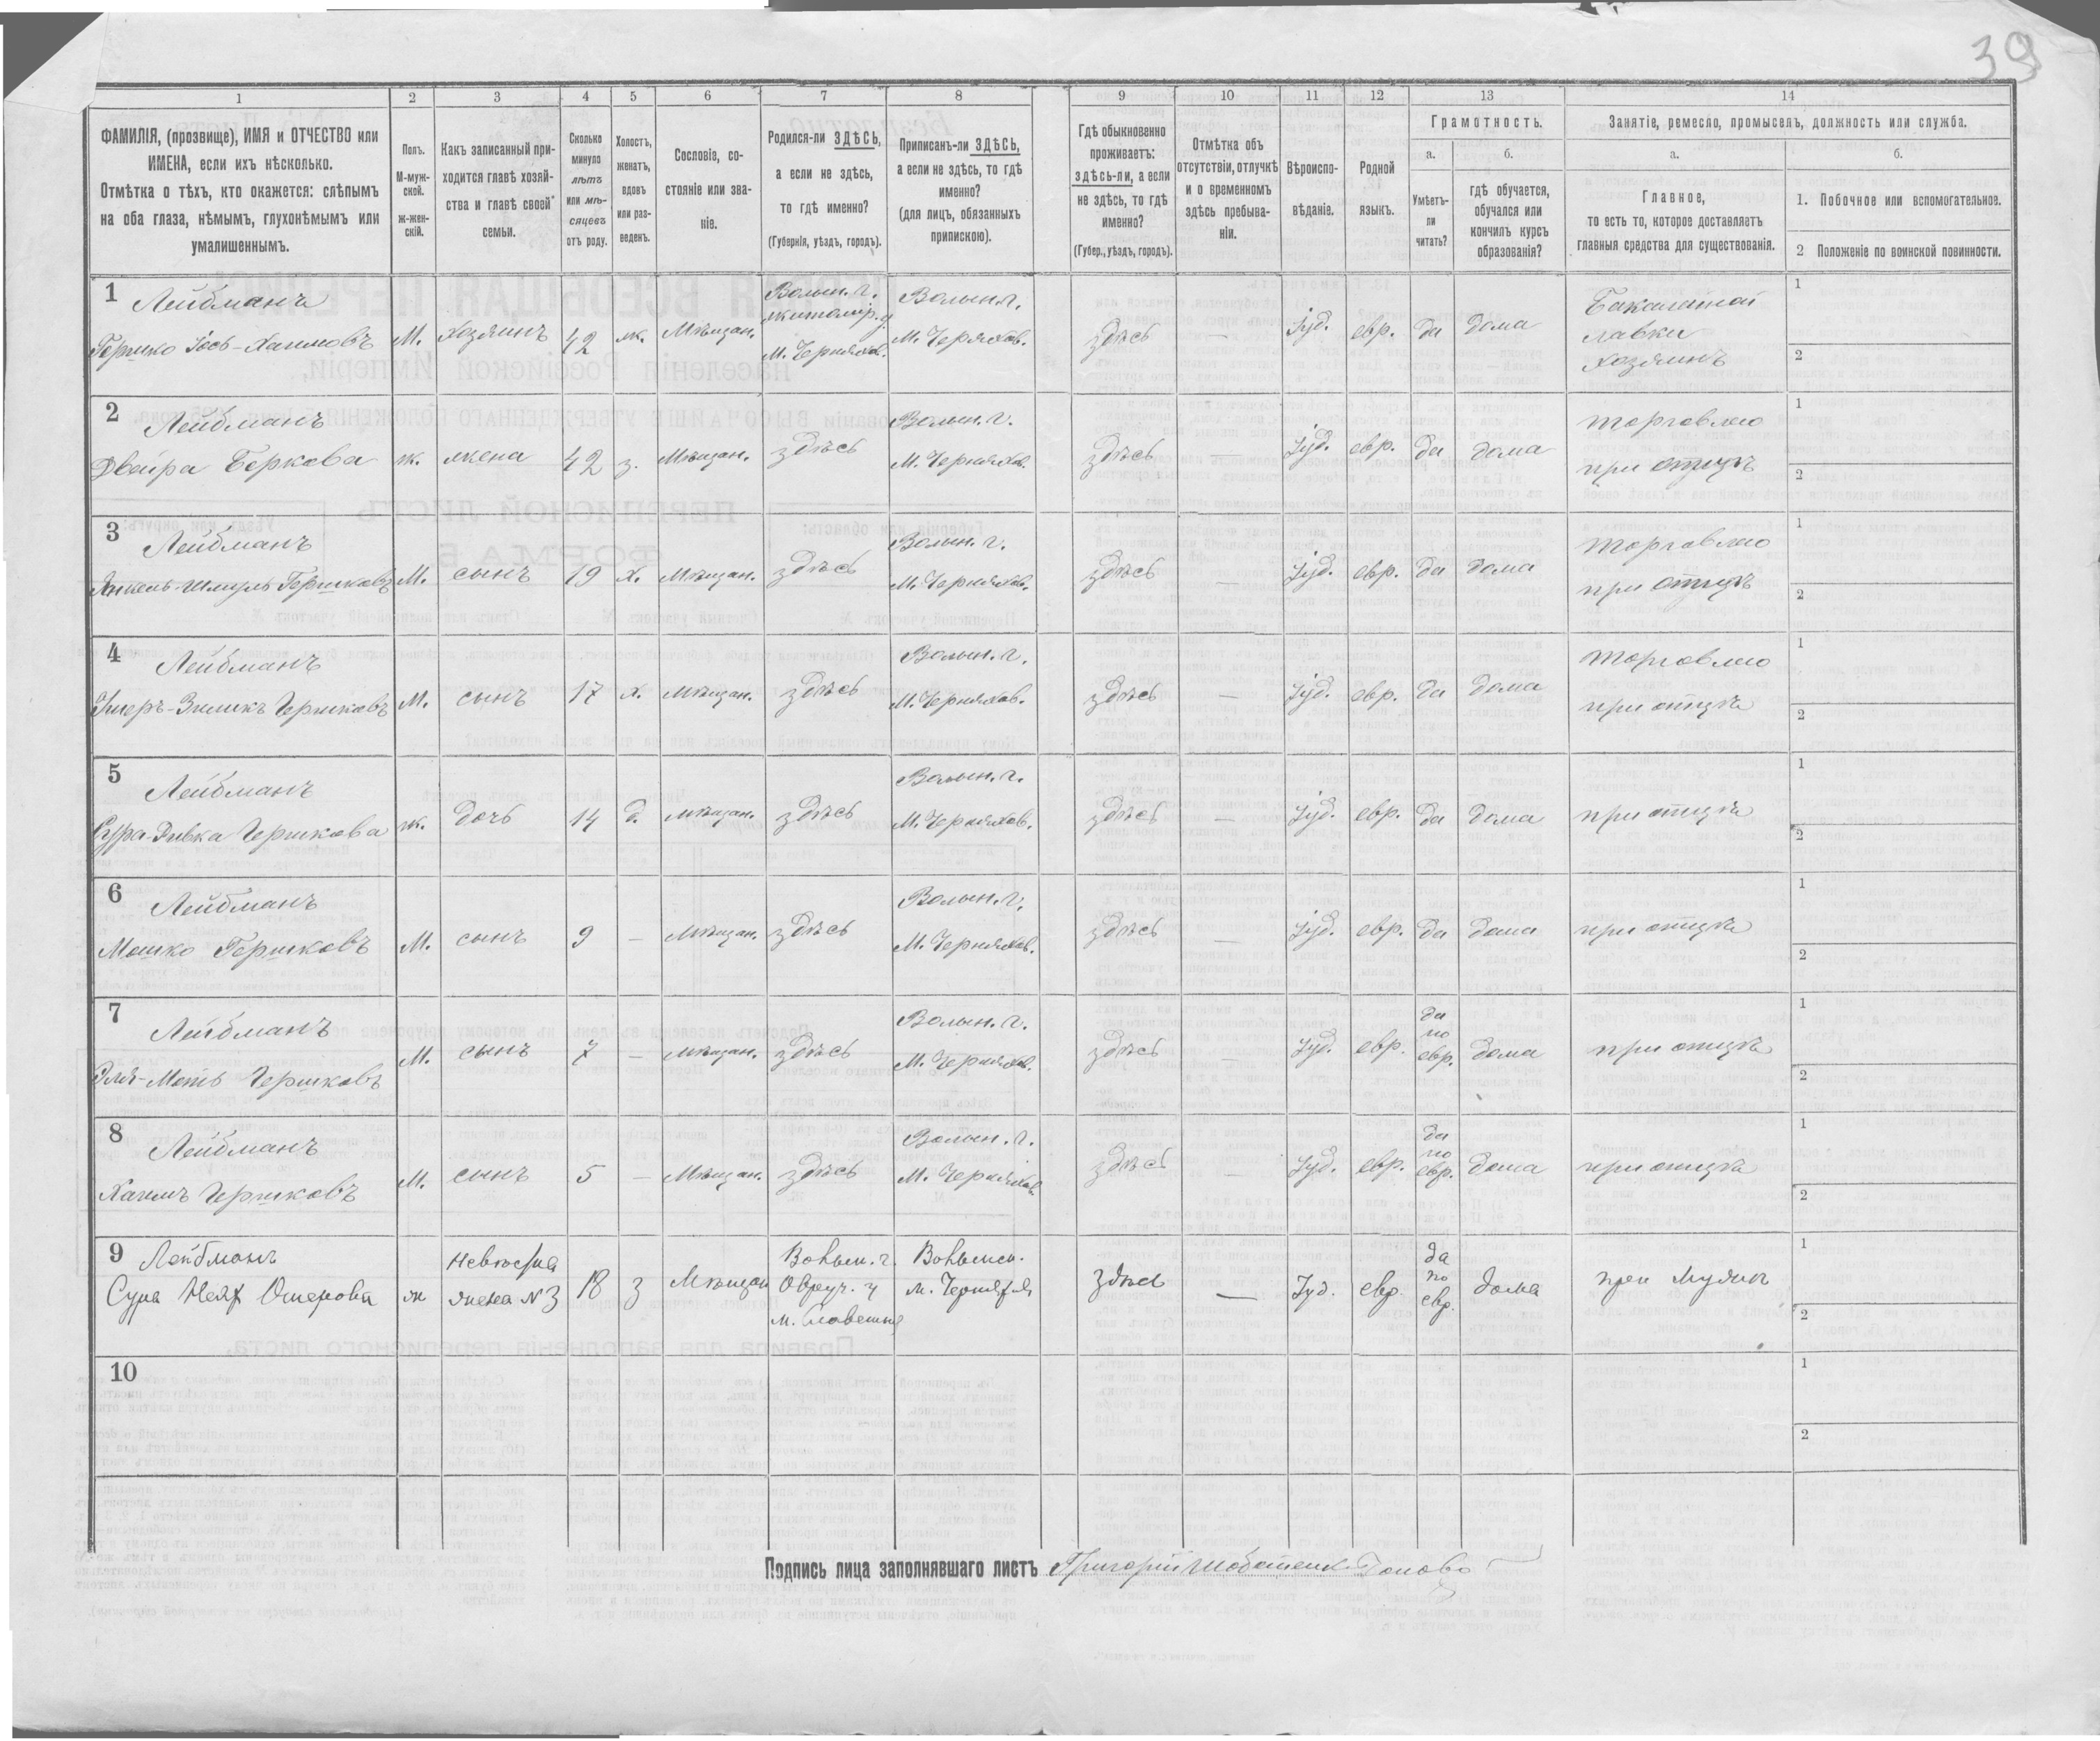 39
1 2 3 4 5 6 7 8 9 10 11 12 13 14
ФАМИЛІЯ, (прозвище), ИМЯ и ОТЧЕСТВО или
ИМЕНА, если ихъ нѣсколько.
Отмѣтка о тѣхъ, кто окажется: слѣпымъ
на оба глаза, нѣмымъ, глухонѣмымъ или
умалишеннымъ.
Полъ.
М-муж-
ской.
ж-жен-
скій.
Какъ записанный при-
ходится главѣ хозяй-
ства и главѣ своей
семьи.
Сколько
минуло
лѣтъ
или мѣ-
сяцевъ
отъ роду.
Холостъ,
женатъ,
вдовъ
или раз-
веденъ.
Сословіе, со-
стояніе или зва-
ніе.
Родился-ли ЗДѢСЬ,
а если не здѣсь,
то гдѣ именно?
(Губернія, уѣздъ, городъ).
Приписанъ-ли ЗДѢСЬ,
а если не здѣсь, то гдѣ
именно?
(для лицъ, обязанныхъ
припискою).
Гдѣ обыкновенно
проживаетъ:
здѣсь-ли, а если
не здѣсь, то гдѣ
именно?
(Губер., уѣздъ, городъ).
Отмѣтка объ
отсутствіи, отлучкѣ
и о временномъ
здѣсь пребыва-
ніи.
Вѣроиспо-
вѣданіе.
Родной
языкъ.
Грамотность.
а.
Умѣетъ-
ли
читать?
б.
гдѣ обучается,
обучался или
кончилъ курсъ
образованія?
Занятіе, ремесло, промыселъ, должность или служба.
а.
Главное,
то есть то, которое доставляетъ
главныя средства для существованія.
б.
1. Побочное или вспомогательное.
2 Положеніе по воинской повинности.
1 Лейбманъ
Гершко Іось-Хаимовъ М. хозяинъ 42 ж. Мѣщан. Волын. г. житомір. у. м. Чернихов. Волын. г. М. Черняхов. здѣсь — Іуд. евр. да дома Бакалейной лавки хозяинъ
1
2
2 Лейбманъ
Двейра Беркова ж. жена 42 з. Мѣщан. здѣсь Волын. г. М. Черняхов. здѣсь — Іуд. евр. да дома торговлею при отцѣ
1
2
3 Лейбманъ
Янкель-Шмуль Гершковъ М. сынъ 19 х. Мѣщан. здѣсь Волын. г. М. Черняхов. здѣсь — Іуд. евр. да дома торговлею при отцѣ
1
2
4 Лейбманъ
Зиликъ Гершковъ М. сынъ 17 х. Мѣщан. здѣсь Волын. г. М. Черняхов. здѣсь — Іуд. евр. да дома торговлею при отцѣ
1
2
5 Лейбманъ
Сура-Ривка Гершкова ж. дочь 14 д. мѣщан. здѣсь Волын. г. М. Черняхов. здѣсь — Іуд. евр. да дома при отцѣ
1
2
6 Лейбманъ
Мошко Гершковъ М. сынъ 9 — Мѣщан. здѣсь Волын. г. М. Черняхов. здѣсь — Іуд. евр. да дома при отцѣ
1
2
7 Лейбманъ
Эля-Моть Гершковъ М. сынъ 7 — мѣщан. здѣсь Волын. г. М. Черняхов. здѣсь — Іуд. евр. да по евр. дома при отцѣ
1
2
8 Лейбманъ
Хаимъ Гершковъ М. сынъ 5 — Мѣщан. здѣсь Волын. г. М. Черняхов. здѣсь — Іуд. евр. да по евр. дома при отцѣ
1
2
9 Лейбманъ
Сура Ошерова ж невѣстка жена N 3 18 з Мѣщан Волын. г. Овруч. у м. Словечно м. Черняхов здѣсь — Іуд. евр. да по евр. дома при мужѣ
1
2
10
1
2
Подпись лица заполнявшаго листъ Григорій